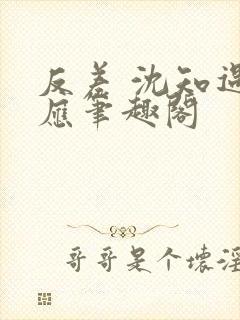 反差 沈知遇
应笔趣阁
哥哥是个坏淫